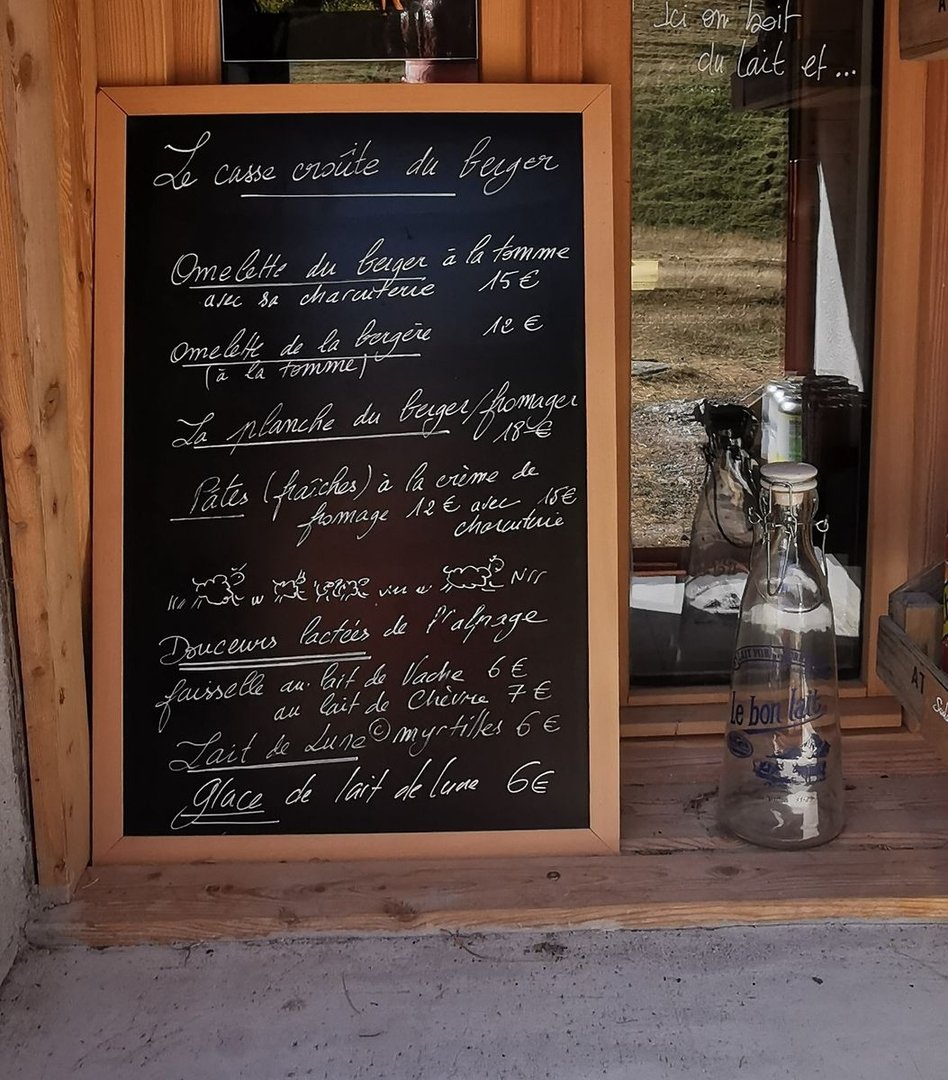 Ici on boit
du lait et...
Le casse croûte du berger
Omelette du berger à la tomme
avec sa charcuterie 15€
Omelette de la bergère 12€
(à la tomme)
La planche du berger/fromager
18€
Pâtes (fraîches) à la crème de
fromage 12€ avec 15€
charcuterie
Douceurs lactées de l'alpage
faisselle au lait de Vache 6€
au lait de Chèvre 7€
Lait de Lune © myrtilles 6€
glace de lait de lune 6€
le bon lait